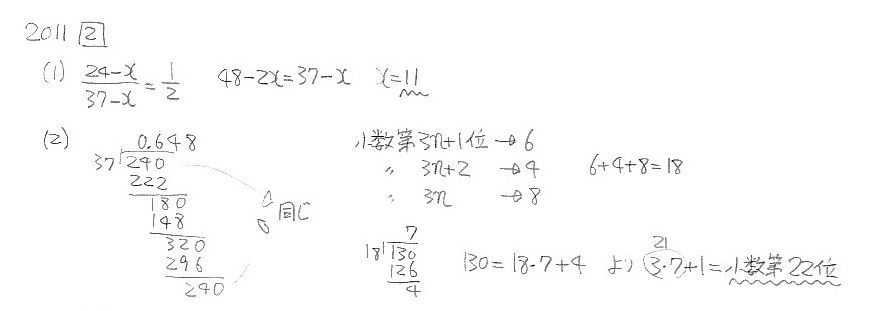 2011 2
(1) (24-x)/(37-x) = 1/2 48-2x=37-x x=11
(2)
0.648
37)240
222
180
148
320
296
240
同じ
小数第3n+1位→6
〃 3n+2 →4 6+4+8=18
〃 3n →8
7
18)130
126
4
21
130=18・7+4 より 3・7+1=小数第22位